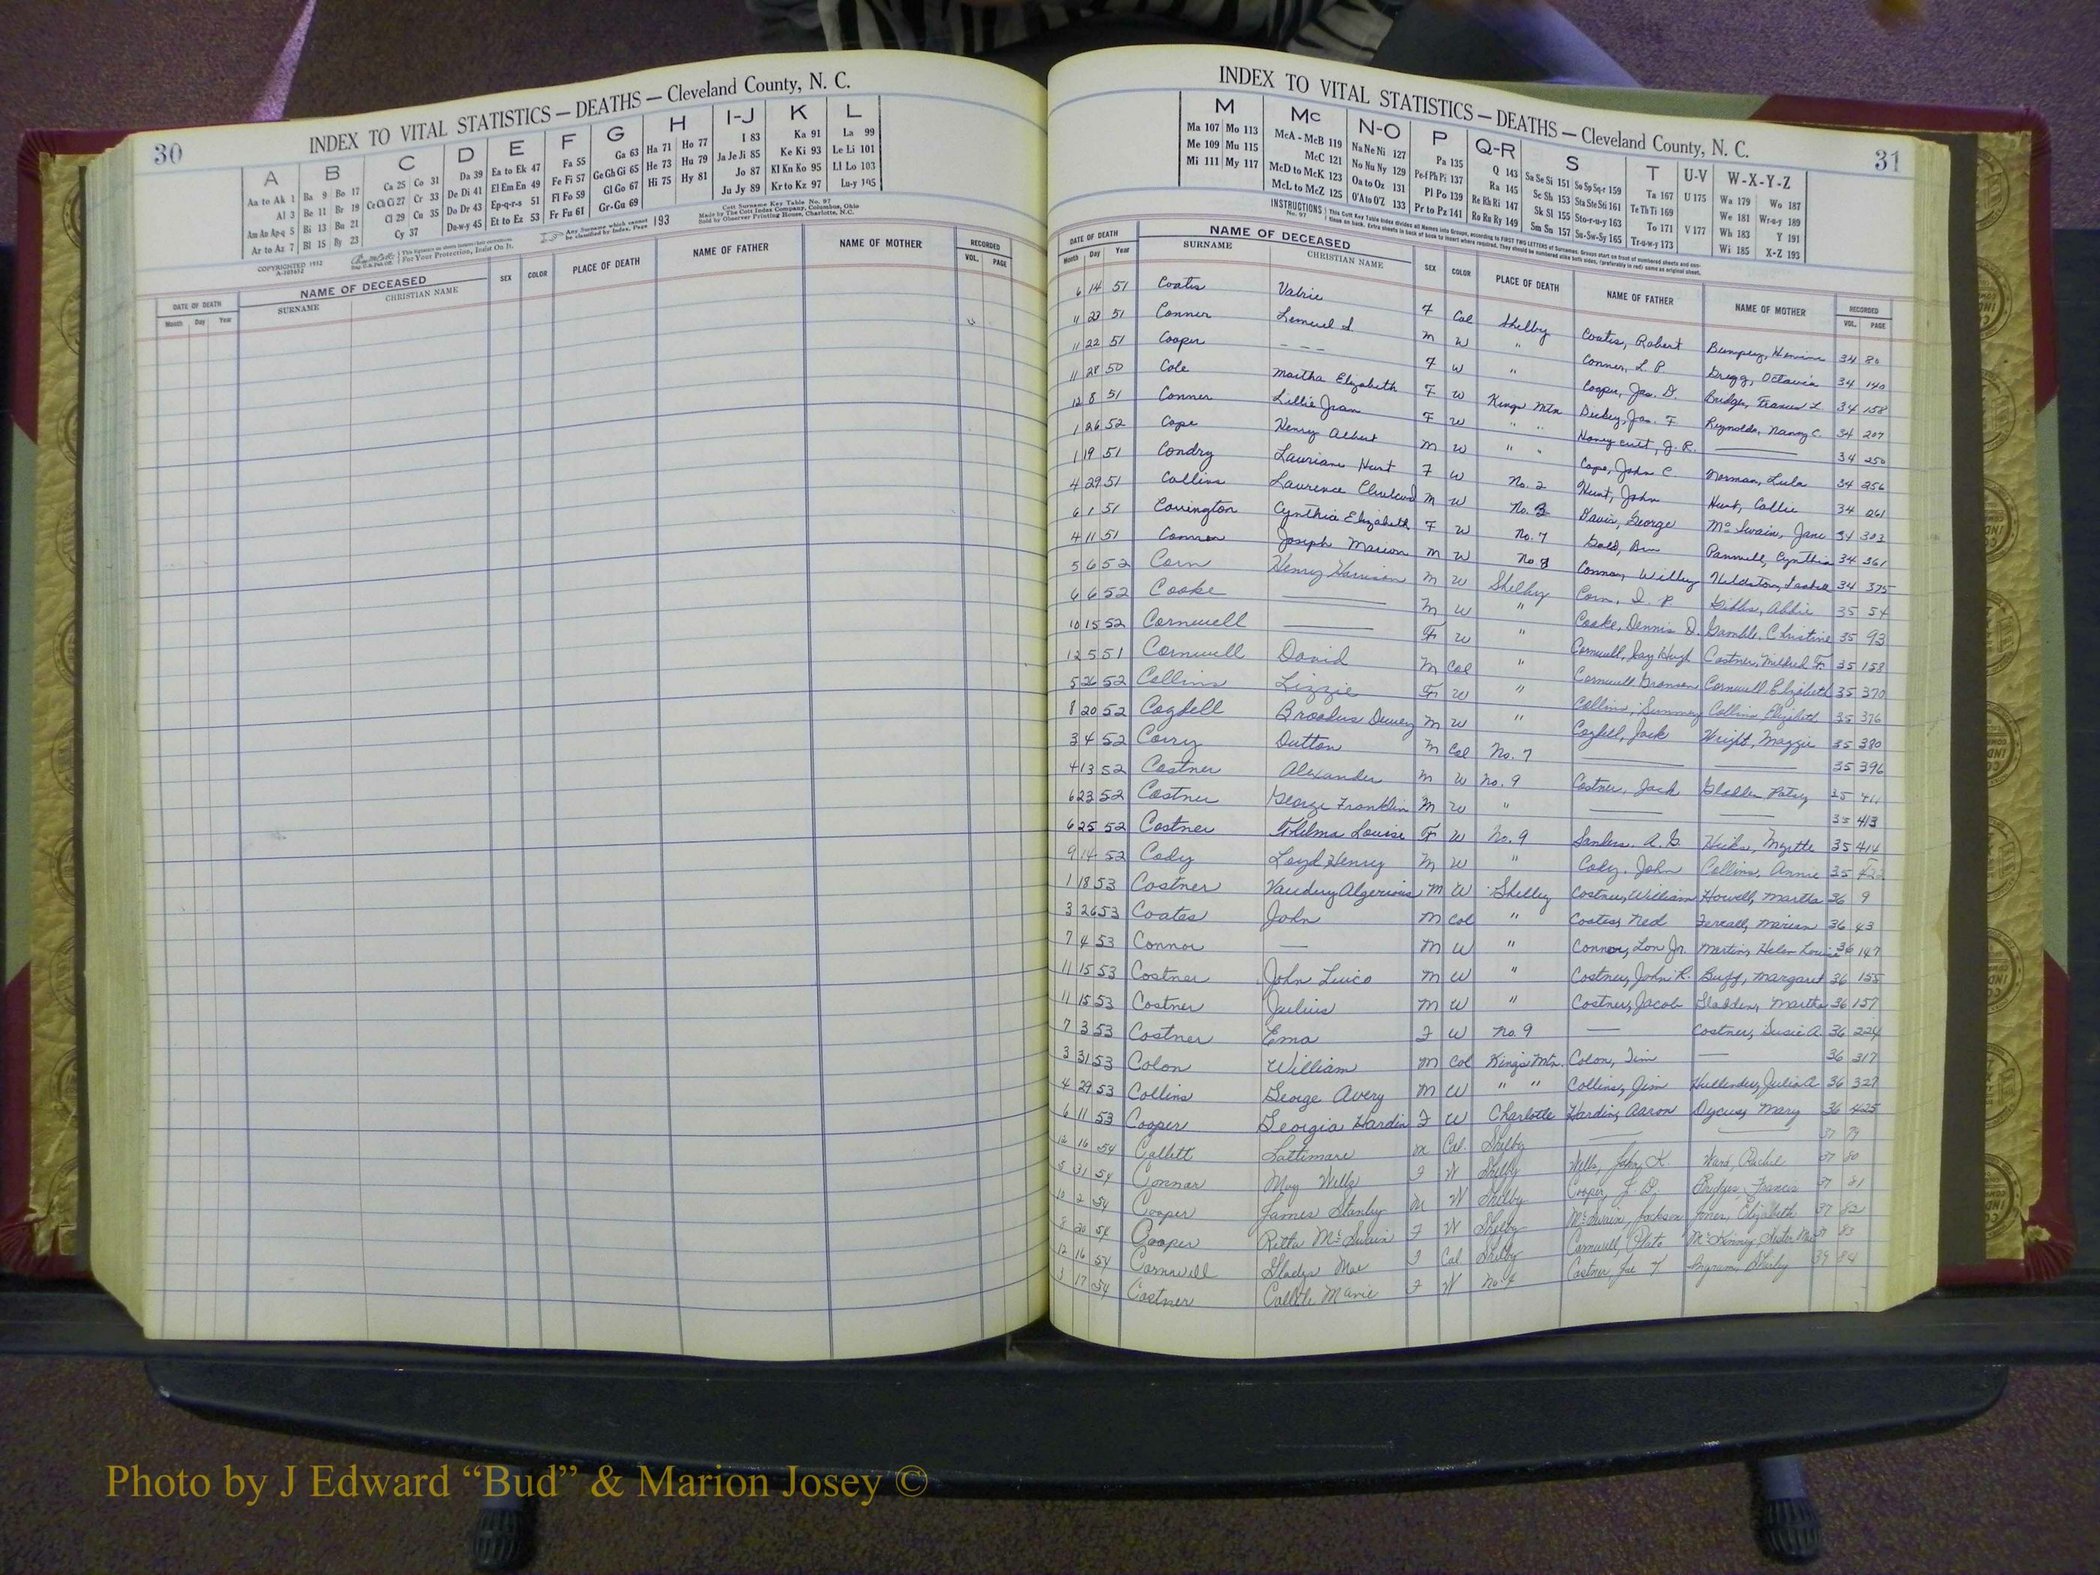 30
INDEX TO VITAL STATISTICS — DEATHS — Cleveland County, N. C.
A B C D E F G H I-J K L
Aa to Ak 1 Ba 9 Bo 17 Ca 25 Co 31 Da 39 Ea to Ek 47 Fa 55 Ga 63 Ha 71 Ho 77 I 83 Ka 91 La 99
Al 3 Be 11 Br 19 Ce Ch Ci 27 Cr 33 De Di 41 El Em En 49 Fe Fi 57 Ge Gh Gi 65 He 73 Hu 79 Ja Je Ji 85 Ke Ki 93 Le Li 101
Am An Ap-q 5 Bi 13 Bu 21 Cl 29 Cu 35 Do Dr 43 Ep-q-r-s 51 Fl Fo 59 Gl Go 67 Hi 75 Hy 81 Jo 87 Kl Kn Ko 95 Ll Lo 103
Ar to Az 7 Bl 15 By 23 Cy 37 Du-w-y 45 Et to Ez 53 Fr Fu 61 Gr-Gu 69 Ju Jy 89 Kr to Kz 97 Lu-y 105
COPYRIGHTED 1932
For Your Protection, Insist On It.
Any Surname which cannot be classified by Index, Page 193
Cott Surname Key Table No. 97
Made by The Cott Index Company, Columbus, Ohio
Sold by Observer Printing House, Charlotte, N.C.
DATE OF DEATH NAME OF DECEASED SEX COLOR PLACE OF DEATH NAME OF FATHER NAME OF MOTHER RECORDED
Month Day Year SURNAME CHRISTIAN NAME VOL. PAGE
INDEX TO VITAL STATISTICS — DEATHS — Cleveland County, N. C.
31
M Mc N-O P Q-R S T U-V W-X-Y-Z
Ma 107 Mo 113 McA - McB 119 Na Ne Ni 127 Pa 135 Q 143 Sa Se Si 151 So Sp Sq-r 159 Ta 167 U 175 Wa 179 Wo 187
Me 109 Mu 115 McC 121 No Nu Ny 129 Pe-f Ph Pi 137 Ra 145 Sc Sh 153 Sta Ste Sti 161 Te Th Ti 169 We 181 Wr-u-y 189
Mi 111 My 117 McD to McK 123 Oa to Oz 131 Pl Po 139 Re Rh Ri 147 Sk Sl 155 Sto-r-u-y 163 To 171 V 177 Wh 183 Y 191
McL to McZ 125 O'A to O'Z 133 Pr to Pz 141 Ro Ru Ry 149 Sm Sn 157 Su-Sw-Sy 165 Tr-u-w-y 173 Wi 185 X-Z 193
INSTRUCTIONS No. 97
DATE OF DEATH NAME OF DECEASED SEX COLOR PLACE OF DEATH NAME OF FATHER NAME OF MOTHER RECORDED
Month Day Year SURNAME CHRISTIAN NAME VOL. PAGE
6 14 51 Coates Valrie F Col Shelby Coates, Robert 34 80
11 23 51 Conner Lemuel S M W " Conner, L. P. Gregg, Octavia 34 140
11 22 51 Cooper - - - F W " Cooper, Jas. D. Bridges, Frances L. 34 158
11 28 50 Cole Martha Elizabeth F W Kings Mtn Jas. F. Reynolds, Nancy C. 34 207
12 8 51 Conner Lillie Jean F W " " Honeycutt, J. R. 34 250
1 26 52 Cope Henry Albert M W " " Cope, John C. Norman, Lula 34 256
1 19 51 Condry Hunt F W No. 2 Hunt, John Hunt, Callie 34 261
4 29 51 Collins Laurence Cleveland M W No. 3 Davis, George McSwain, Jane 34 303
6 1 51 Covington Cynthia Elizabeth F W No. 7 Gold, Ben Pannell, Cynthia 34 361
4 11 51 Connor Joseph Marion M W No. 8 Connor, Wilby 34 375
5 6 52 Corn Henry Harrison M W Shelby Corn, Gibbs, Addie 35 54
6 6 52 Cooke M W " Cooke, Dennis D. Gamble, Christine 35 93
10 15 52 Cornwell F W " Cornwell, Ray Hugh Costner, Mildred F. 35 158
12 5 51 Cornwell David M Col " Cornwell Cornwell Elizabeth 35 370
5 26 52 Collins Lizzie F W " Collins, Collins Elizabeth 35 376
8 20 52 Cogdell Broadus Dewey M W " Cogdell, Jack Wright, Maggie 35 380
3 4 52 Corry Dutton M Col No. 7 35 396
4 13 52 Costner Alexander M W No. 9 Costner, Jack Gladden Patsy 35 411
6 23 52 Costner George Franklin M W " 35 413
6 25 52 Costner Thelma Louise F W No. 9 Sanders, A. G. Hicks, Myrtle 35 414
9 14 52 Cody Loyd Henry M W " Cody, John Collins, Annie 35
1 18 53 Costner M W Shelby Costner, William Howell, Martha 36 9
3 26 53 Coates John M Col " Coates, Ned 36 43
7 4 53 Connor — M W " Connor, Lon Jr. Martin, Helen Louise 36 147
11 15 53 Costner John M W " Costner, John R. Margaret 36 155
11 15 53 Costner Julius M W " Costner, Jacob Gladden, Martha 36 157
7 3 53 Costner Ema F W No. 9 — Costner, Susie A. 36 224
3 31 53 Colon William M Col Kings Mtn. Colon, Jim — 36 317
4 29 53 Collins George Avery M W " " Collins, Jim Hullender, Julia A. 36 327
6 11 53 Cooper Georgia Hardin F W Charlotte Hardin, Aaron Dycus, Mary 36 425
12 16 54 Collett Lattimore M Col. Shelby 37 79
5 31 54 Connor May Wells F W Shelby Wells, John K. Ward, Rachel 37 80
10 2 54 Cooper James Stanley M W Shelby Cooper, J. D. Bridges, Francis 37 81
8 30 54 Cooper Retha McSwain F W Shelby McSwain, Jackson Jones, Elizabeth 37 82
12 16 54 Cornwell Gladys Mae F Col Shelby Cornwell, Plato McKinney 37 83
3 17 54 Costner Marie F W No 4 Costner, Joe Ingram, Shirley 84
Photo by J Edward “Bud” & Marion Josey ©